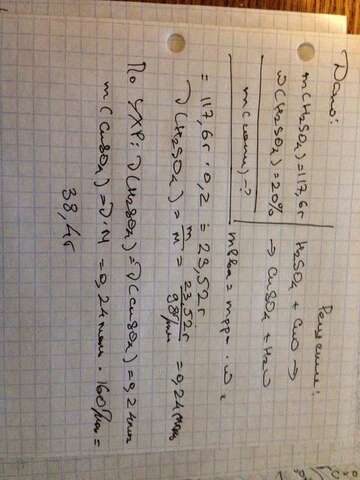 Дано:
m(H₂SO₄)=117,6г
ω(H₂SO₄)=20%
m(соли)-?
Решение:
H₂SO₄ + CuO →
→ CuSO₄ + H₂O
mв-ва = mр-ра · ω =
= 117,6г · 0,2 = 23,52г
ν(H₂SO₄) = m/M = 23,52г/98г/моль = 0,24моль
По УХР: ν(H₂SO₄)=ν(CuSO₄)=0,24моль
m(CuSO₄)=ν·M = 0,24моль · 160г/моль =
38,4г